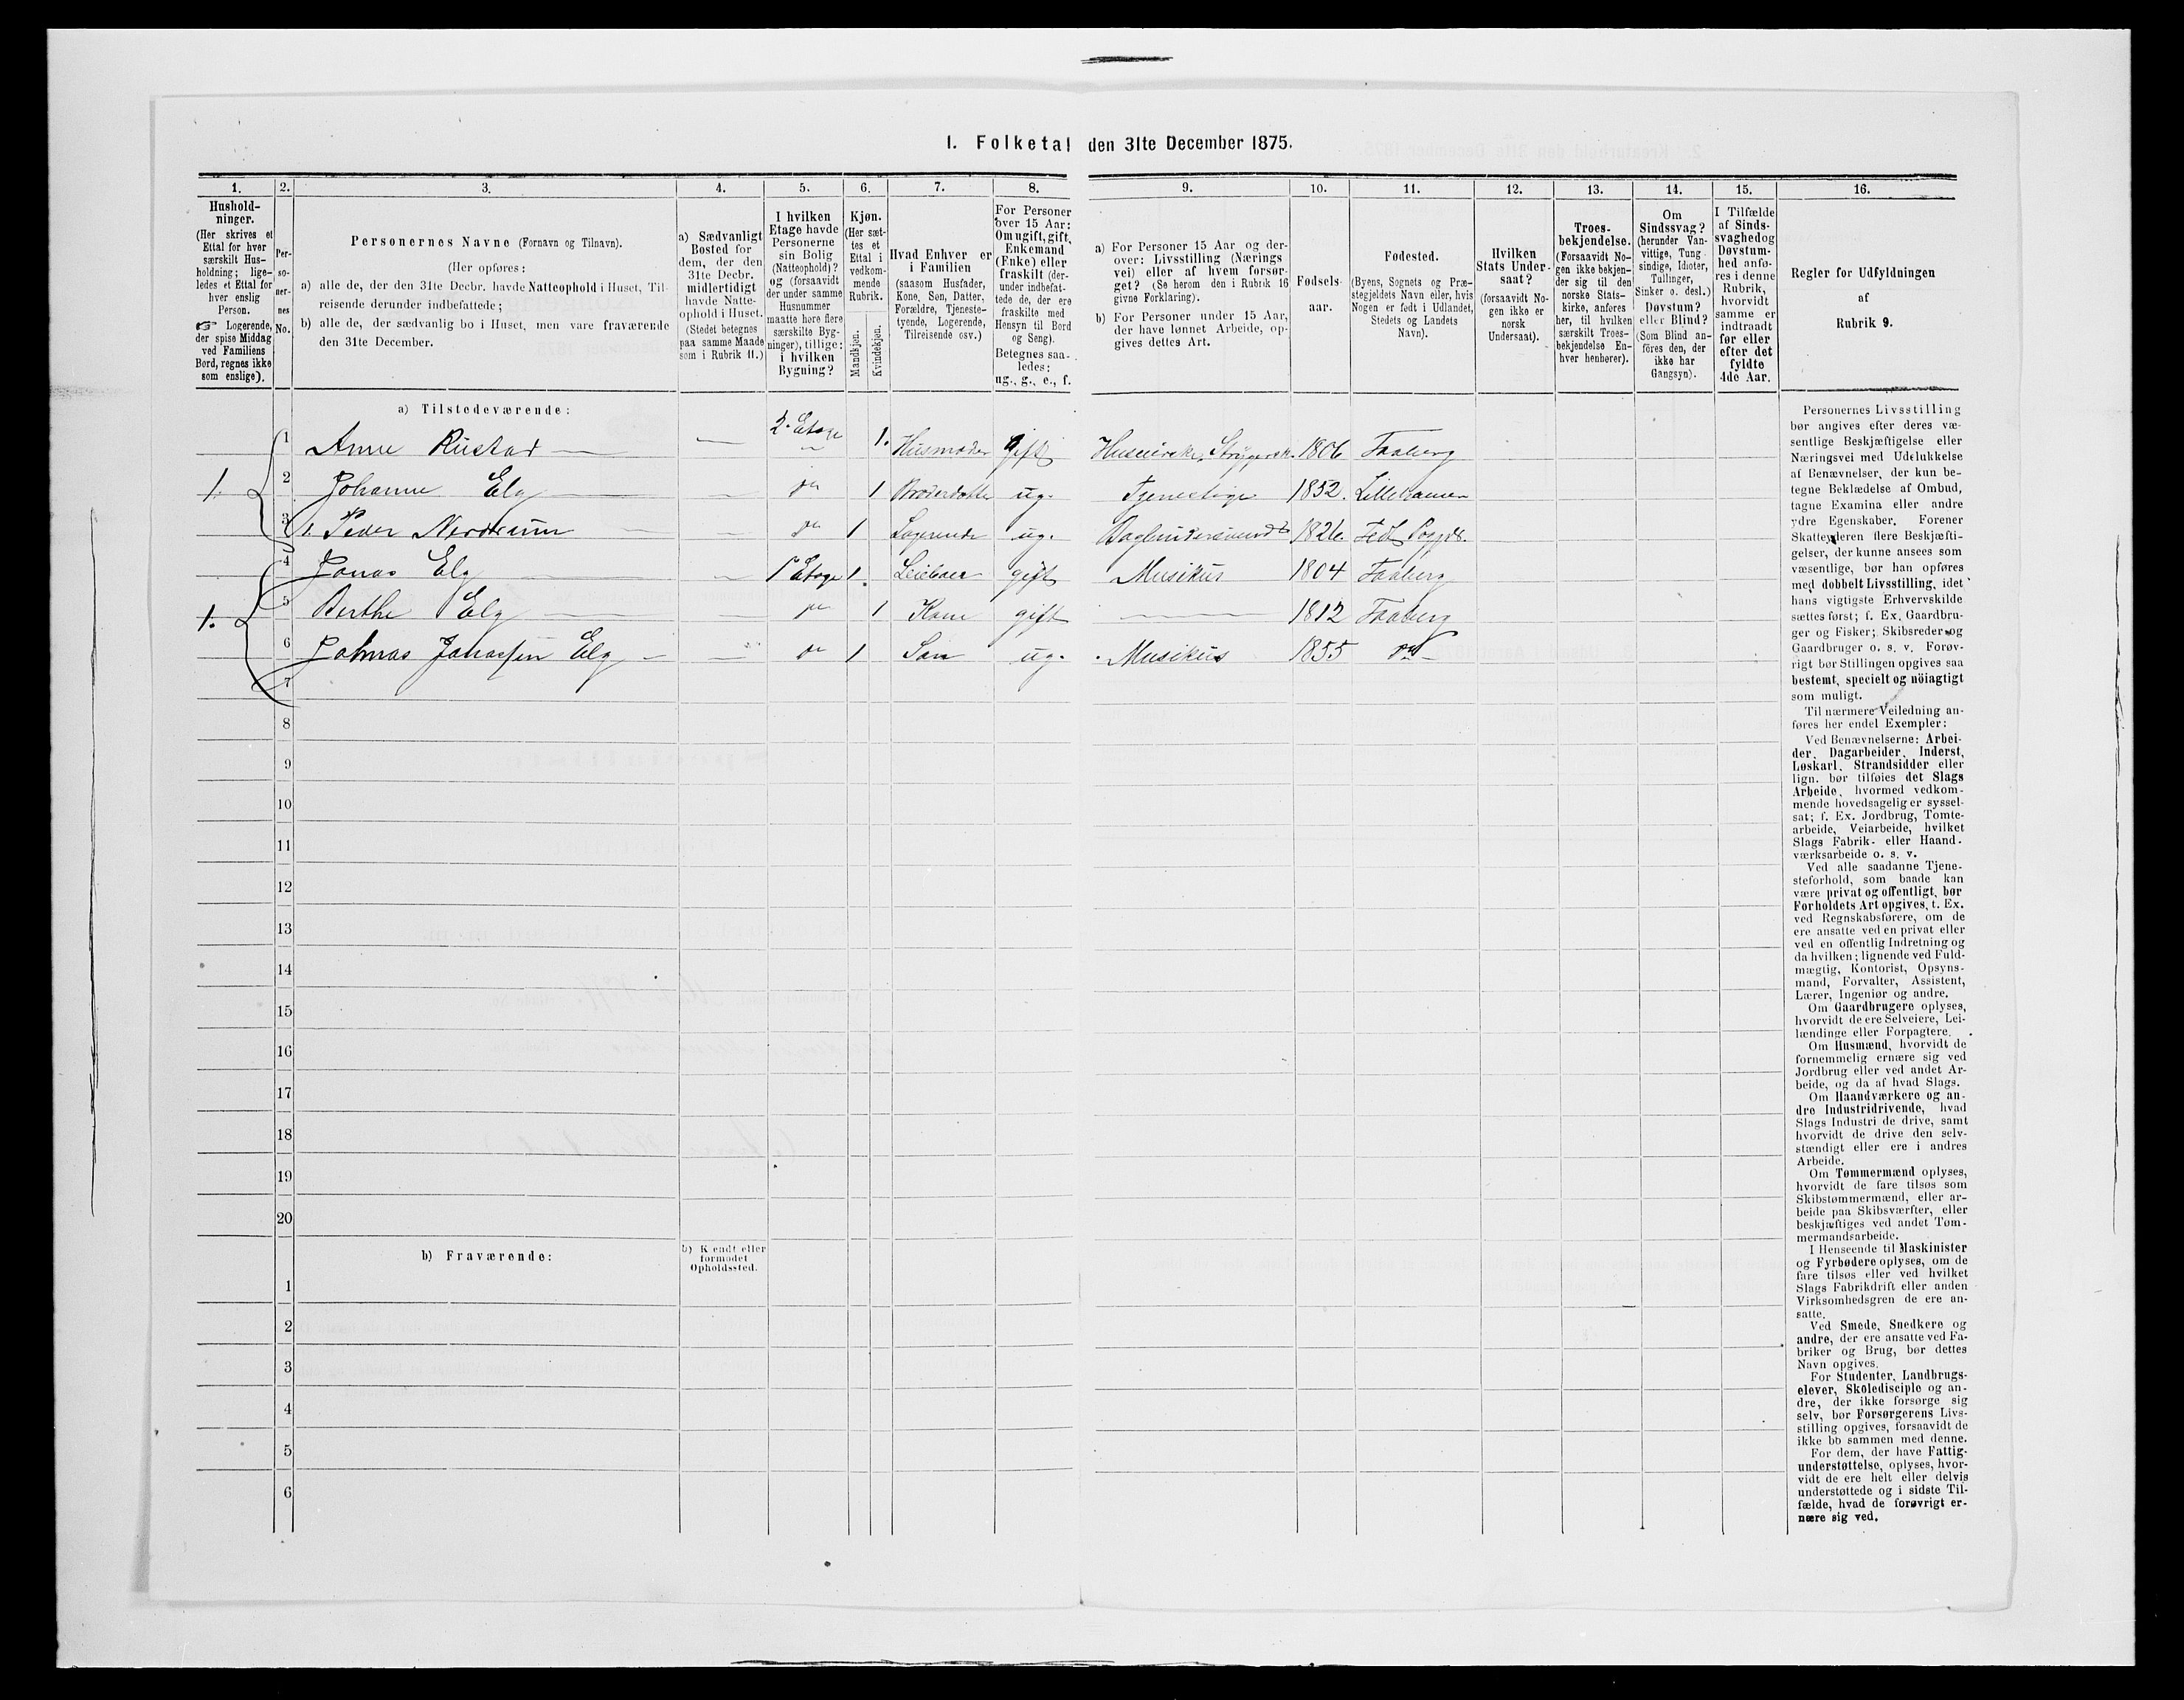 1. Folketal den 31te December 1875.
1. 2. 3. 4. 5. 6. 7. 8. 9. 10. 11. 12. 13. 14. 15. 16.
Hushold-
ninger.
(Her skrives et
Ettal for hver
særskilt Hus-
holdning; lige-
ledes et Ettal for
hver enslig
Person.
☞ Logerende,
der spise Middag
ved Familiens
Bord, regnes ikke
som enslige).
Per-
so-
ner-
nes
No.
Personernes Navne (Fornavn og Tilnavn).
(Her opføres:
a) alle de, der den 31te Decbr. havde Natteophold i Huset, Til-
reisende derunder indbefattede;
b) alle de, der sædvanlig bo i Huset, men vare fraværende
den 31te December.
a) Sædvanligt
Bosted for
dem, der den
31te Decbr.
midlertidigt
havde Natte-
ophold i Huset.
(Stedet betegnes
paa samme Maade
som i Rubrik 11.)
I hvilken
Etage havde
Personerne
sin Bolig
(Natteophold)?
og (forsaavidt
der under samme
Husnummer
maatte høre flere
særskilte Byg-
ninger), tillige:
i hvilken
Bygning?
Kjøn.
(Her sæt-
tes et
Ettal i
vedkom-
mende
Rubrik.
Mandkjøn.
Kvindekjøn.
Hvad Enhver er
i Familien
(saasom Husfader,
Kone, Søn, Datter,
Forældre, Tjeneste-
tyende, Logerende,
Tilreisende osv.)
For Personer
over 15 Aar:
Om ugift, gift,
Enkemand
(Enke) eller
fraskilt (der-
under indbefat-
tede de, der ere
fraskilte med
Hensyn til Bord
og Seng).
Betegnes saa-
ledes:
ug., g., e., f.
a) For Personer 15 Aar og der-
over: Livsstilling (Nærings
vei) eller af hvem forsør-
get? (Se herom den i Rubrik 16
givne Forklaring).
b) For Personer under 15 Aar,
der have lønnet Arbeide, op-
gives dettes Art.
Fødsels-
aar.
Fødested.
(Byens, Sognets og Præ-
stegjeldets Navn eller, hvis
Nogen er født i Udlandet,
Stedets og Landets
Navn).
Hvilken
Stats Under-
saat?
(forsaavidt No-
gen ikke er
norsk
Undersaat).
Troes-
bekjendelse.
(Forsaavidt No-
gen ikke bekjen-
der sig til den
norske Stats-
kirke, anføres
her, til hvilken
særskilt Troes-
bekjendelse En-
hver henhører).
Om
Sindssvag?
(herunder Van-
vittige, Tung
sindige, Idioter,
Tullinger,
Sinker o. desl.)
Døvstum?
eller Blind?
(Som Blind an-
føres den, der
ikke har
Gangsyn).
I Tilfælde
af Sinds-
svaghed og
Døvstum-
hed anfø-
res i denne
Rubrik,
hvorvidt
samme er
indtraadt
før eller
efter det
fyldte
4de Aar.
Regler for Udfyldningen
af
Rubrik 9.
a) Tilstedeværende:
1 Anne Rustad — — 2. Etage 1. Husmoder gift Huseierske, 1806 Faaberg
1. 2 Johanne Elg — — do 1 Broderdatter ug. Tjenestepige 1852. Lillehamer
3 1. Peder Nordraum — — do 1 Logerende ug. 1826.
4 Jonas Elg — — 1 Etage 1. gift Musikus 1804 Faaberg
1. 5 Berthe Elg — — do 1 Kone gift — 1812 Faaberg
6 Elg — — do 1 Søn ug. Musikus 1855 do
7
8
9
10
11
12
13
14
15
16
17
18
19
20
b) Fraværende:
b) Kendt eller
formodet
Opholdssted.
1
2
3
4
5
6
Personernes Livsstilling
bør angives efter deres væ-
sentlige Beskjæftigelse eller
Næringsvei med Udelukkelse
af Benævnelser, der kun be-
tegne Beklædelse af Ombud,
tagne Examina eller andre
ydre Egenskaber. Forener
Skatteyderen flere Beskjæfti-
gelser, der kunne ansees som
væsentlige, bør han opføres
med dobbelt Livsstilling, idet
hans vigtigste Erhvervskilde
sættes først; f. Ex. Gaardbru-
ger og Fisker; Skibsreder og
Gaardbruger o. s. v. Forøv-
rigt bør Stillingen opgives saa
bestemt, specielt og nöiagtigt
som muligt.
Til nærmere Veiledning an-
føres her endel Exempler:
Ved Benævnelserne: Arbei-
der, Dagarbeider, Inderst,
Løskarl, Strandsidder eller
lign. bør tilføies det Slags
Arbeide, hvormed vedkom-
mende hovedsagelig er syssel-
sat; f. Ex. Jordbrug, Tomte-
arbeide, Veiarbeide, hvilket
Slags Fabrik- eller Haand-
værksarbeide o. s. v.
Ved alle saadanne Tjene-
steforhold, som baade kan
være privat og offentligt, bør
Forholdets Art opgives, t. Ex.
ved Regnskabsførere, om de
ere ansatte ved en privat eller
ved en offentlig Indretning og
da hvilken; lignende ved Fuld-
mægtig, Kontorist, Opsyns-
mand, Forvalter, Assistent,
Lærer, Ingeniør og andre.
Om Gaardbrugere oplyses,
hvorvidt de ere Selveiere, Lei-
lændinge eller Forpagtere.
Om Husmænd, hvorvidt de
fornemmelig ernære sig ved
Jordbrug eller ved andet Ar-
beide, og da af hvad Slags.
Om Haandværkere og an-
dre Industridrivende, hvad
Slags Industri de drive, samt
hvorvidt de drive den selv-
stændigt eller ere i andres
Arbeide.
Om Tømmermænd oplyses,
hvorvidt de fare tilsøs som
Skibstømmermænd, eller ar-
beide paa Skibsværfter, eller
beskjæftiges ved andet Tøm-
mermandsarbeide.
I Henseende til Maskinister
og Fyrbødere oplyses, om de
fare tilsøs eller ved hvilket
Slags Fabrikdrift eller anden
Virksomhedsgren de ere an-
satte.
Ved Smede, Snedkere og
andre, der ere ansatte ved Fa-
briker og Brug, bør dettes
Navn opgives.
For Studenter, Landbrugs-
elever, Skoledisciple og an-
dre, der ikke forsørge sig
selv, bør Forsørgerens Livs-
stilling opgives, forsaavidt de
ikke bo sammen med denne.
For dem, der have Fattig-
understøttelse, oplyses, hvor-
vidt de ere helt eller delvis
understøttede og i sidste Til-
fælde, hvad de forøvrigt er-
nære sig ved.